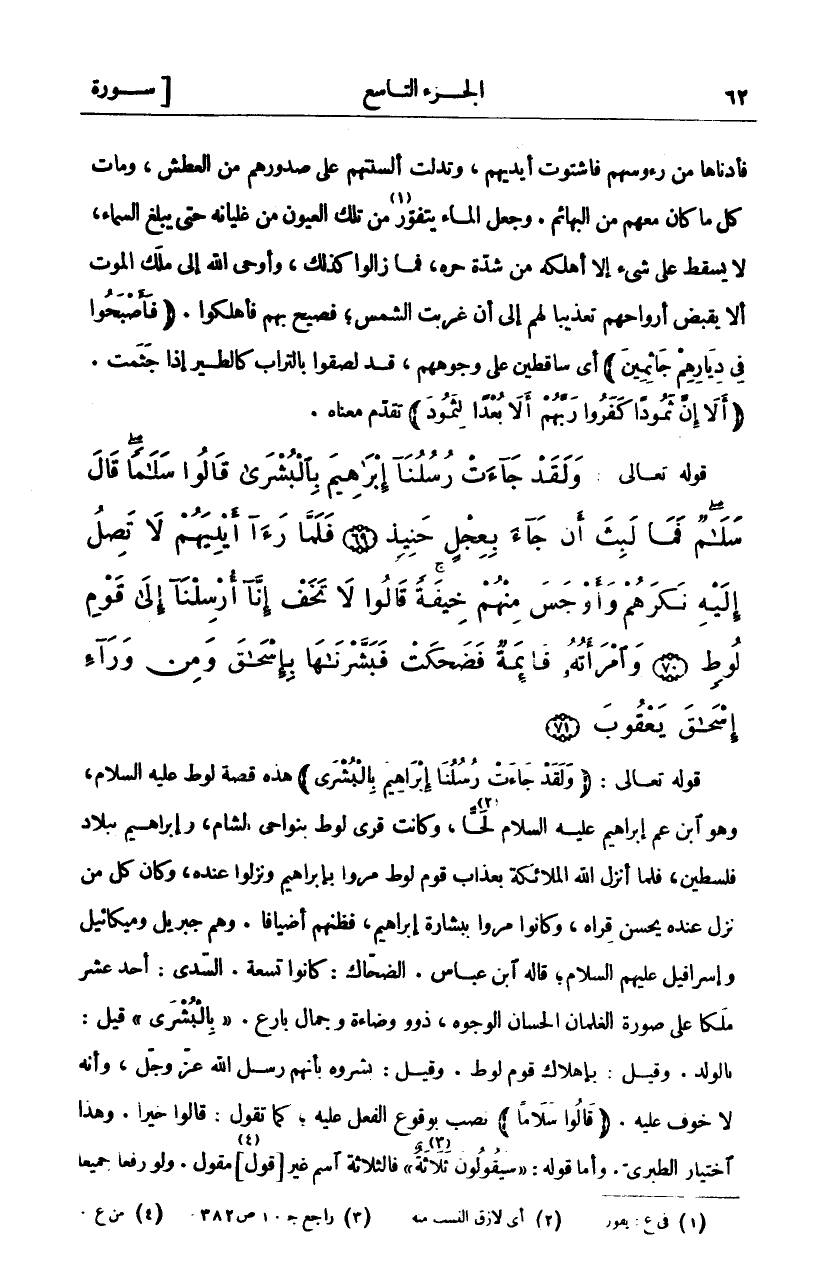 ٦٢ الجـزء التـاسع [ ســورة
فأدناها من رءوسهم فاشتوت أيديهم ، وتدلت ألسنتهم على صدورهم من العطش ، ومات
كل ما كان معهم من البهائم . وجعل المـاء يتفوّر(١) من تلك العيون من غليانه حتى يبلغ السماء،
لا يسقط على شىء إلا أهلكه من شدّة حره، فمـا زالوا كذلك ، وأوحى الله إلى ملَك الموت
ألا يقبض أرواحهم تعذيبا لهم إلى أن غربت الشمس؛ فصيح بهم فأهلكوا . ﴿ فَأَصْبَحُوا
فِى دِيَارِهِمْ جَاثِمِينَ ﴾ أى ساقطين على وجوههم ، قـد لصقوا بالتراب كالطـير إذا جَثَمت .
﴿ أَلَا إِنَّ ثَمُودًا كَفَرُوا رَبَّهُمْ أَلَا بُعْدًا لِثَمُودَ ﴾ تقدّم معناه .
قوله تعـالى : وَلَقَدْ جَآءَتْ رُسُلُنَآ إِبْرَٰهِيمَ بِٱلْبُشْرَىٰ قَالُوا سَلَـٰمًا ۖ قَالَ
سَلَـٰمٌ ۖ فَمَـا لَبِثَ أَن جَآءَ بِعِجْلٍ حَنِيذٍ ٦٩ فَلَمَّا رَءَآ أَيْدِيَهُمْ لَا تَصِلُ
إِلَيْهِ نَكِرَهُمْ وَأَوْجَسَ مِنْهُمْ خِيفَةً ۚ قَالُوا لَا تَخَفْ إِنَّآ أُرْسِلْنَآ إِلَىٰ قَوْمِ
لُوطٍ ٧٠ وَٱمْرَأَتُهُۥ قَآئِمَةٌ فَضَحِكَتْ فَبَشَّرْنَـٰهَا بِإِسْحَـٰقَ وَمِن وَرَآءِ
إِسْحَـٰقَ يَعْقُوبَ ٧١
قوله تعـالى : ﴿ وَلَقَدْ جَاءَتْ رُسُلُنَا إِبْرَاهِيمَ بِالْبُشْرَى ﴾ هذه قصة لوط عليه السلام،
وهو ٱبن عم إبراهيم عليـه السلام لَحًّا(٢) ، وكانت قرى لوط بنواحى الشام، وإبراهـيم ببلاد
فلسطين، فلما أنزل الله الملائكة بعذاب قوم لوط مروا بإبراهيم ونزلوا عنده، وكان كل من
نزل عنده يحسن قراه ، وكانوا مروا ببشارة إبراهيم، فظنهم أضيافا . وهم جبريل وميكائيل
وإسرافيل عليهم السلام؛ قاله ٱبن عبـاس . الضحّاك : كانوا تسعة . السّدى : أحد عشر
ملَكا على صورة الغلمان الحسان الوجوه ، ذوو وضاءة وجمال بارع . « بِالْبُشْرَى » قيل :
بالولد . وقيـل : بإهلاك قوم لوط . وقيـل : بشروه بأنهم رسـل الله عزّ وجلّ ، وأنه
لا خوف عليه . ﴿ قَالُوا سَلَامًا ﴾ نصب بوقوع الفعل عليه ؛ كما تقول : قالوا خيرا . وهذا
ٱختيار الطبرىّ . وأما قوله : « سَيَقُولُونَ ثَلَاثَةٌ(٣) » فالثلاثة ٱسم غير [ قول(٤) ] مقول . ولو رفعا جميعا
(١) فى ع : يفور (٢) أى لازق النسب منه (٣) راجع جـ ١٠ ص ٣٨٢ . (٤) من ع .